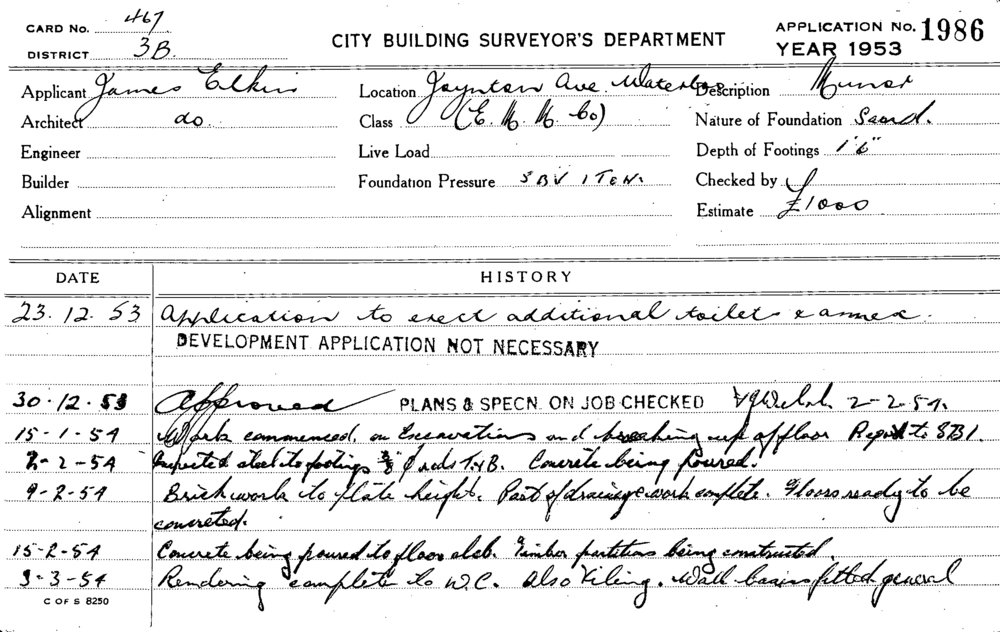 CARD No. 467
DISTRICT 3B.
CITY BUILDING SURVEYOR'S DEPARTMENT
APPLICATION No. 1986
YEAR 1953
Applicant James Elkin Location Joynton Ave Waterloo Description
Architect do. Class (E. M. M. Co) Nature of Foundation Sand.
Engineer Live Load Depth of Footings 1'6"
Builder Foundation Pressure SBV 1 TON. Checked by
Alignment Estimate £1000
DATE HISTORY
23.12.53 Application to erect additional toilets & annex.
DEVELOPMENT APPLICATION NOT NECESSARY
30-12-53 Approved PLANS & SPECN. ON JOB CHECKED 2-2-54.
15-1-54 Work commenced, on Excavations and breaking up of floor Report to SBI.
2-2-54 Inspected steel to footings 3/8" rods T&B. Concrete being poured.
9-2-54 Brickwork to plate height. Part of drainage work complete. Floors ready to be
concreted.
15-2-54 Concrete being poured to floor slab. Timber partitions being constructed.
3-3-54 Rendering complete to W.C. also tiling. Wall basins fitted general
C OF S 8250